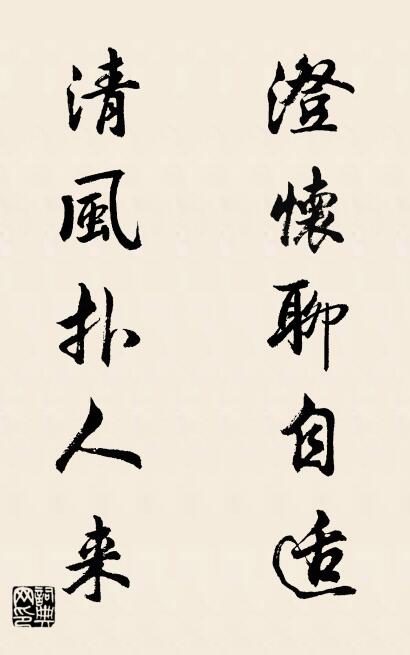 澄懷聊自适
清風扑人来
詞典网印